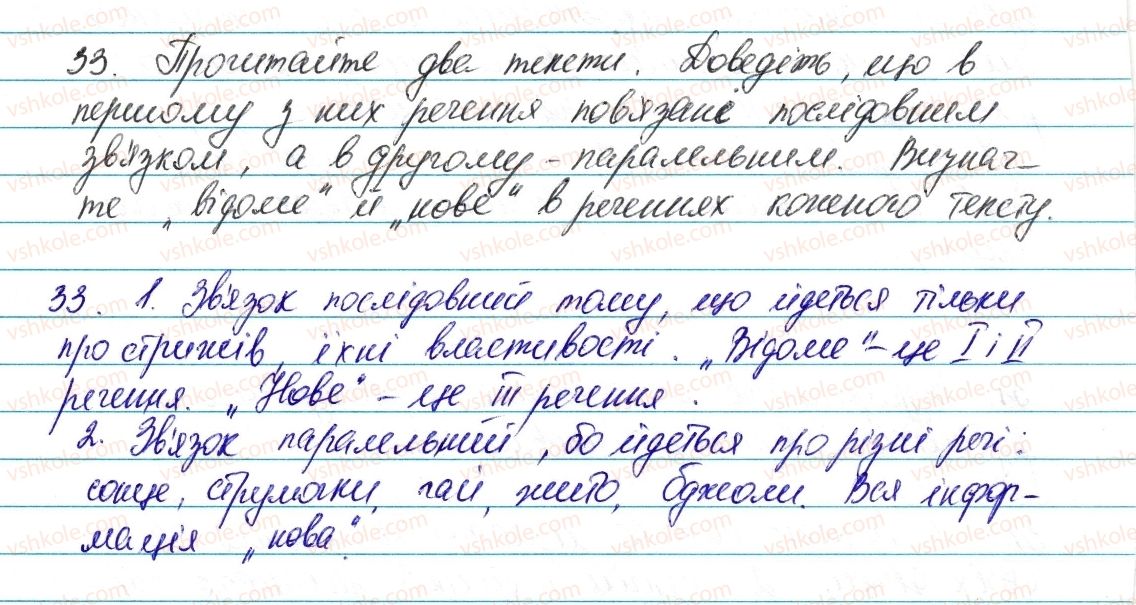 33. Прочитайте два тексти. Доведіть, що в
першому з них речення пов'язані послідовним
зв'язком, а в другому - паралельним. Визнач-
те „відоме" й „нове" в реченнях кожного тексту.
33. 1. Зв'язок послідовний тому, що йдеться тільки
про стрижів, їхні властивості. „Відоме" - це I і II
речення. „Нове" - це III речення.
2. Зв'язок паралельний, бо йдеться про різні речі:
сонце, струмочки, гай, жито, бджоли. Вся інфор-
мація „нова".